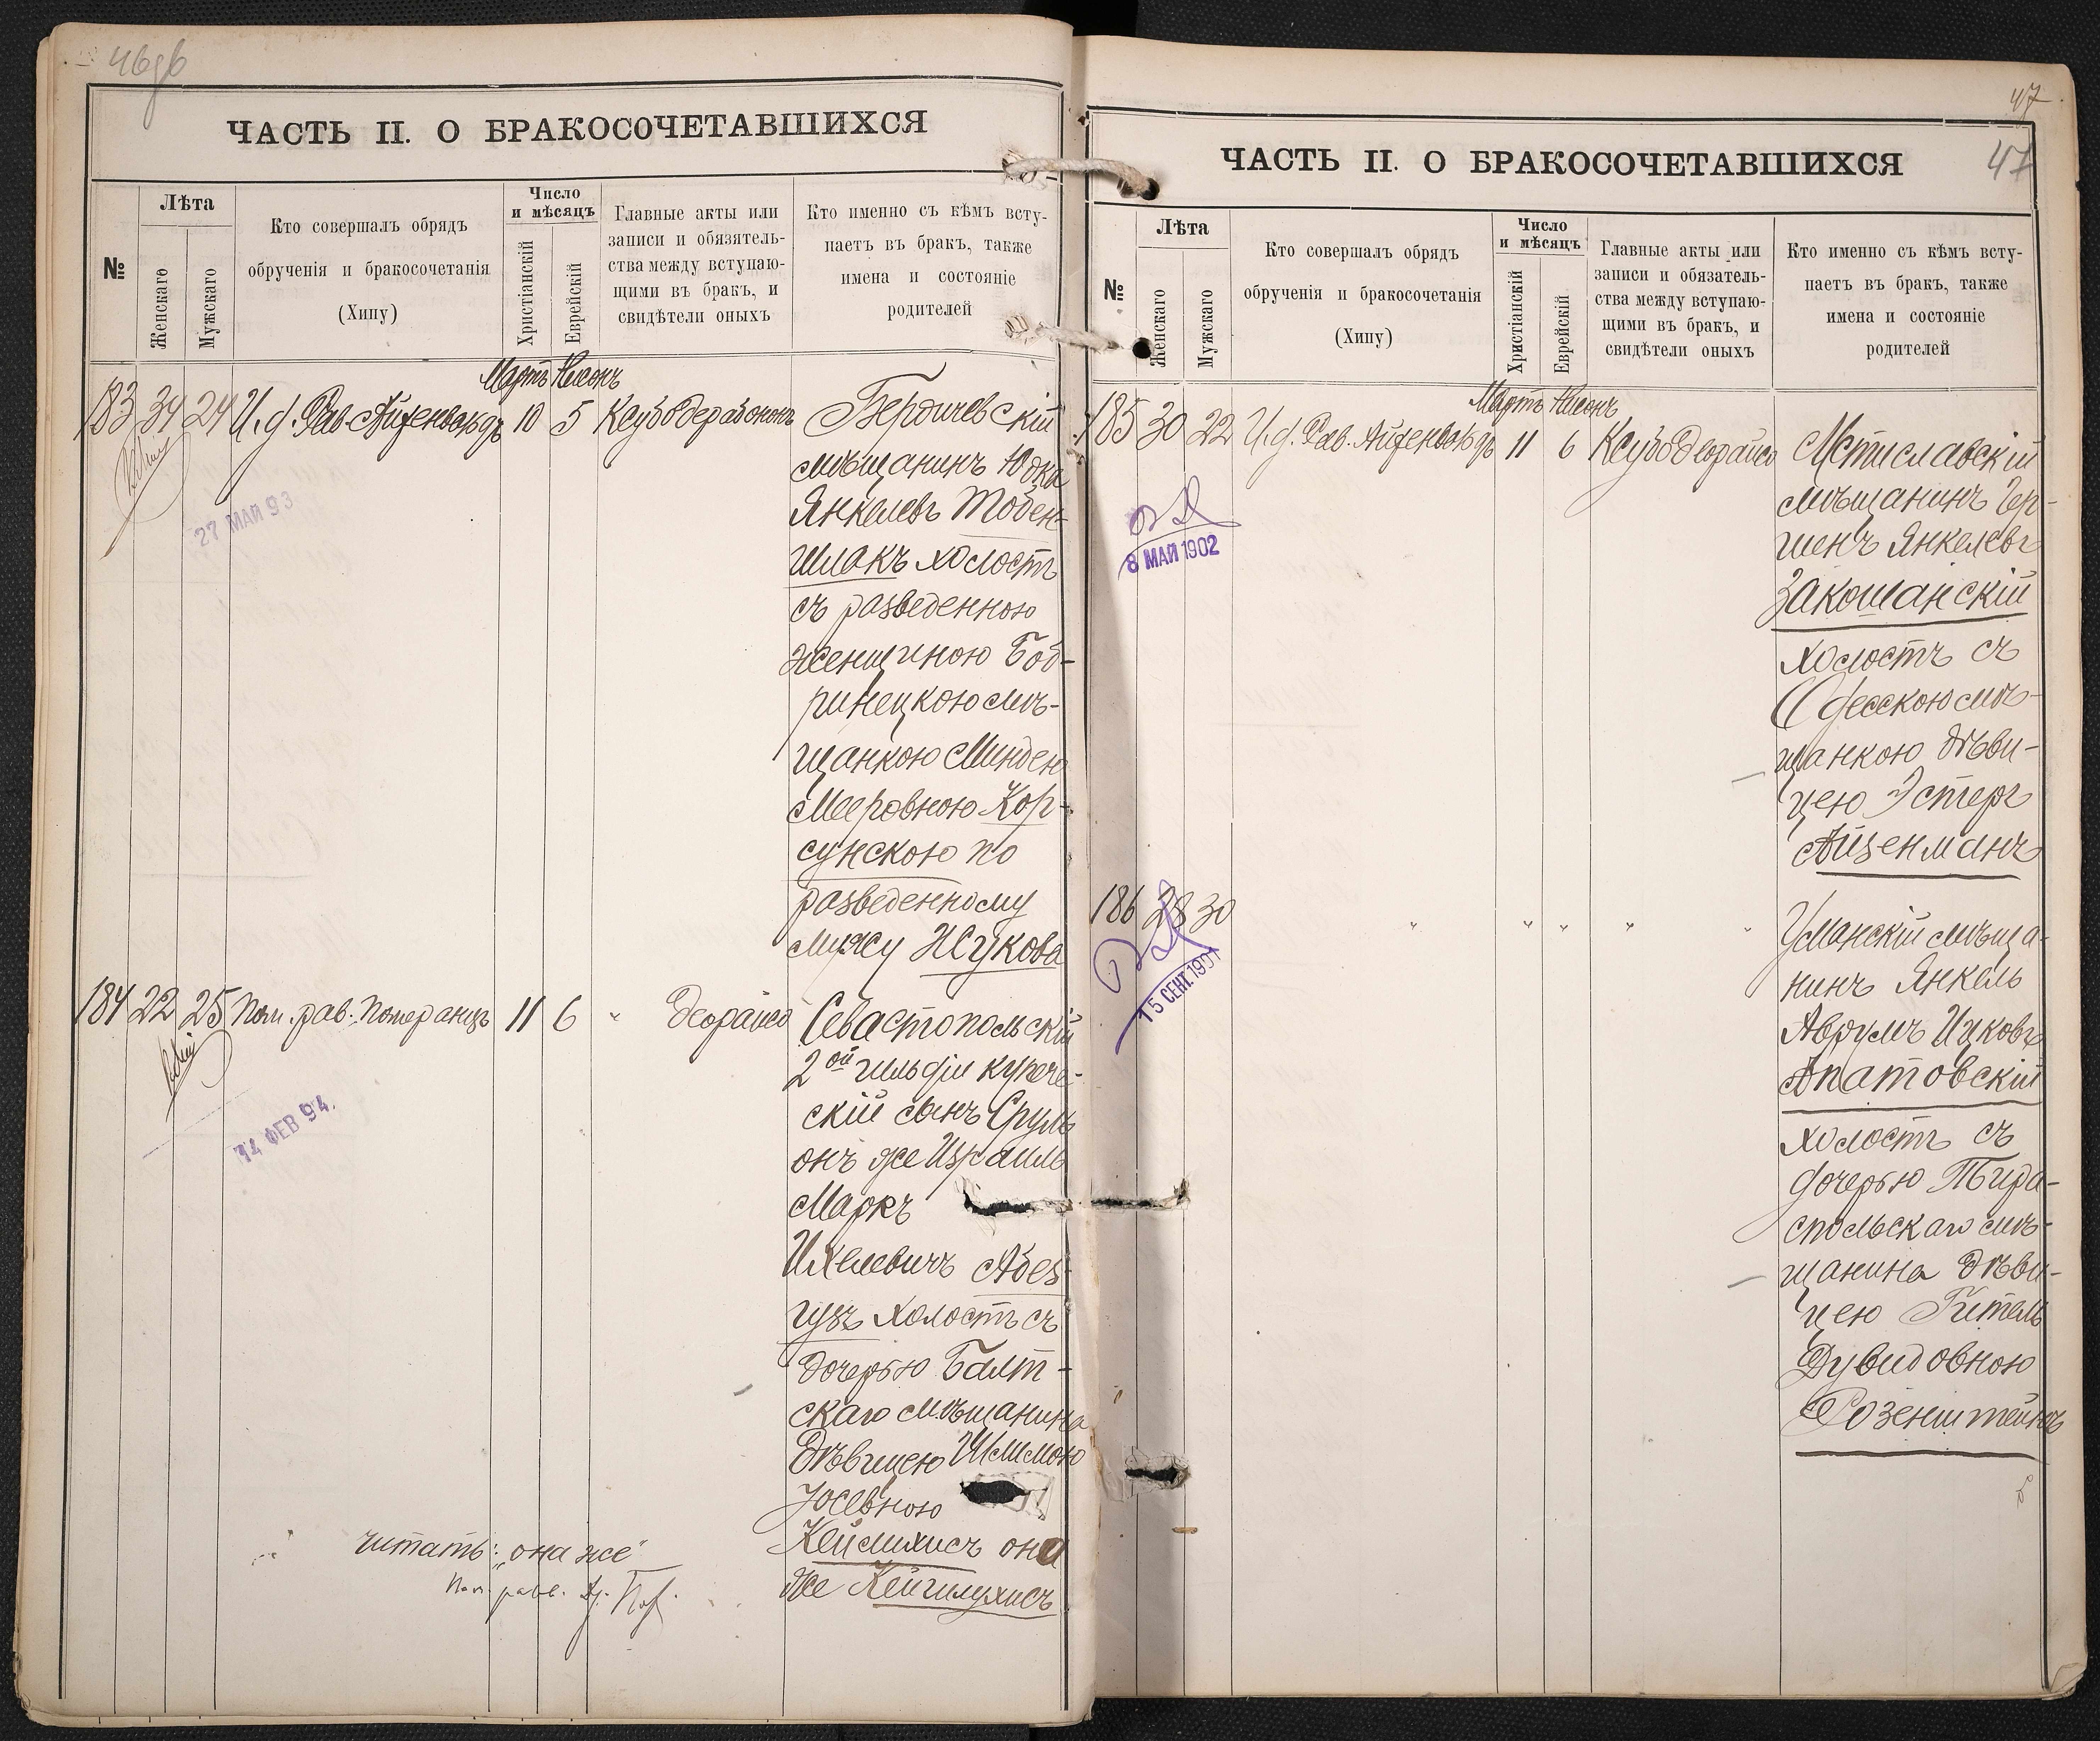 46об
ЧАСТЬ II. О БРАКОСОЧЕТАВШИХСЯ
№
Лѣта
Женскаго
Мужскаго
Кто совершалъ обрядъ
обрученія и бракосочетанія
(Хипу)
Число
и мѣсяцъ
Христіанскій
Еврейскій
Главные акты или
записи и обязятель-
ства между вступаю-
щими въ бракъ, и
свидѣтели оныхъ
Кто именно съ кѣмъ всту-
паетъ въ бракъ, также
имена и состояніе
родителей
Мартъ Нисонъ
183 34 24 И.д. Рав. Айзенвальдъ 10 5 Ксубо дерабононъ
Бердичевскій
мѣщанинъ Юдка
Янкелевъ Тобен-
шлакъ холостъ
съ разведенною
женщиною Боб-
ринецкою мѣ-
щанкою Минден
Мееровною Кор-
сунскою по
разведенному
мужу Жукова
27 МАЙ 93
184 22 25 Пом. рав. Померанцъ 11 6 " деорайсо
Севастопольскій
2ой гильдіи купече-
скій сынъ Сруль
онъ же Израиль
Маркъ
Ихелевичъ Абез-
гузъ холостъ съ
дочерью Балт-
скаго мѣщанина
дѣвицею Шлимою
Іосевною
Кейлихисъ она
же Кейгилухисъ
14 ФЕВ 94.
читать: "она же"
Пом. равв.
47
47
ЧАСТЬ II. О БРАКОСОЧЕТАВШИХСЯ
№
Лѣта
Женскаго
Мужскаго
Кто совершалъ обрядъ
обрученія и бракосочетанія
(Хипу)
Число
и мѣсяцъ
Христіанскій
Еврейскій
Главные акты или
записи и обязатель-
ства между вступаю-
щими въ бракъ, и
свидѣтели оныхъ
Кто именно съ кѣмъ всту-
паетъ въ бракъ, также
имена и состояніе
родителей
Мартъ Нисонъ
185 30 22 И.д. Рав. Айзенвальдъ 11 6 Ксубо деорайсо
Мстиславскій
мѣщанинъ Гер-
шенъ Янкелевъ
Закошанскій
холостъ съ
Одесскою мѣ-
щанкою дѣви-
цею Эстеръ
Айзенманъ
8 МАЙ 1902
186 28 30 " " " " "
Уманскій мѣща-
нинъ Янкель
Аврумъ Ицковъ
Апатовскій
холостъ съ
дочерью Тира-
спольскаго мѣ-
щанина дѣви-
цею Гитель
Дувидовною
Розенштейнъ
15 СЕНТ. 1901